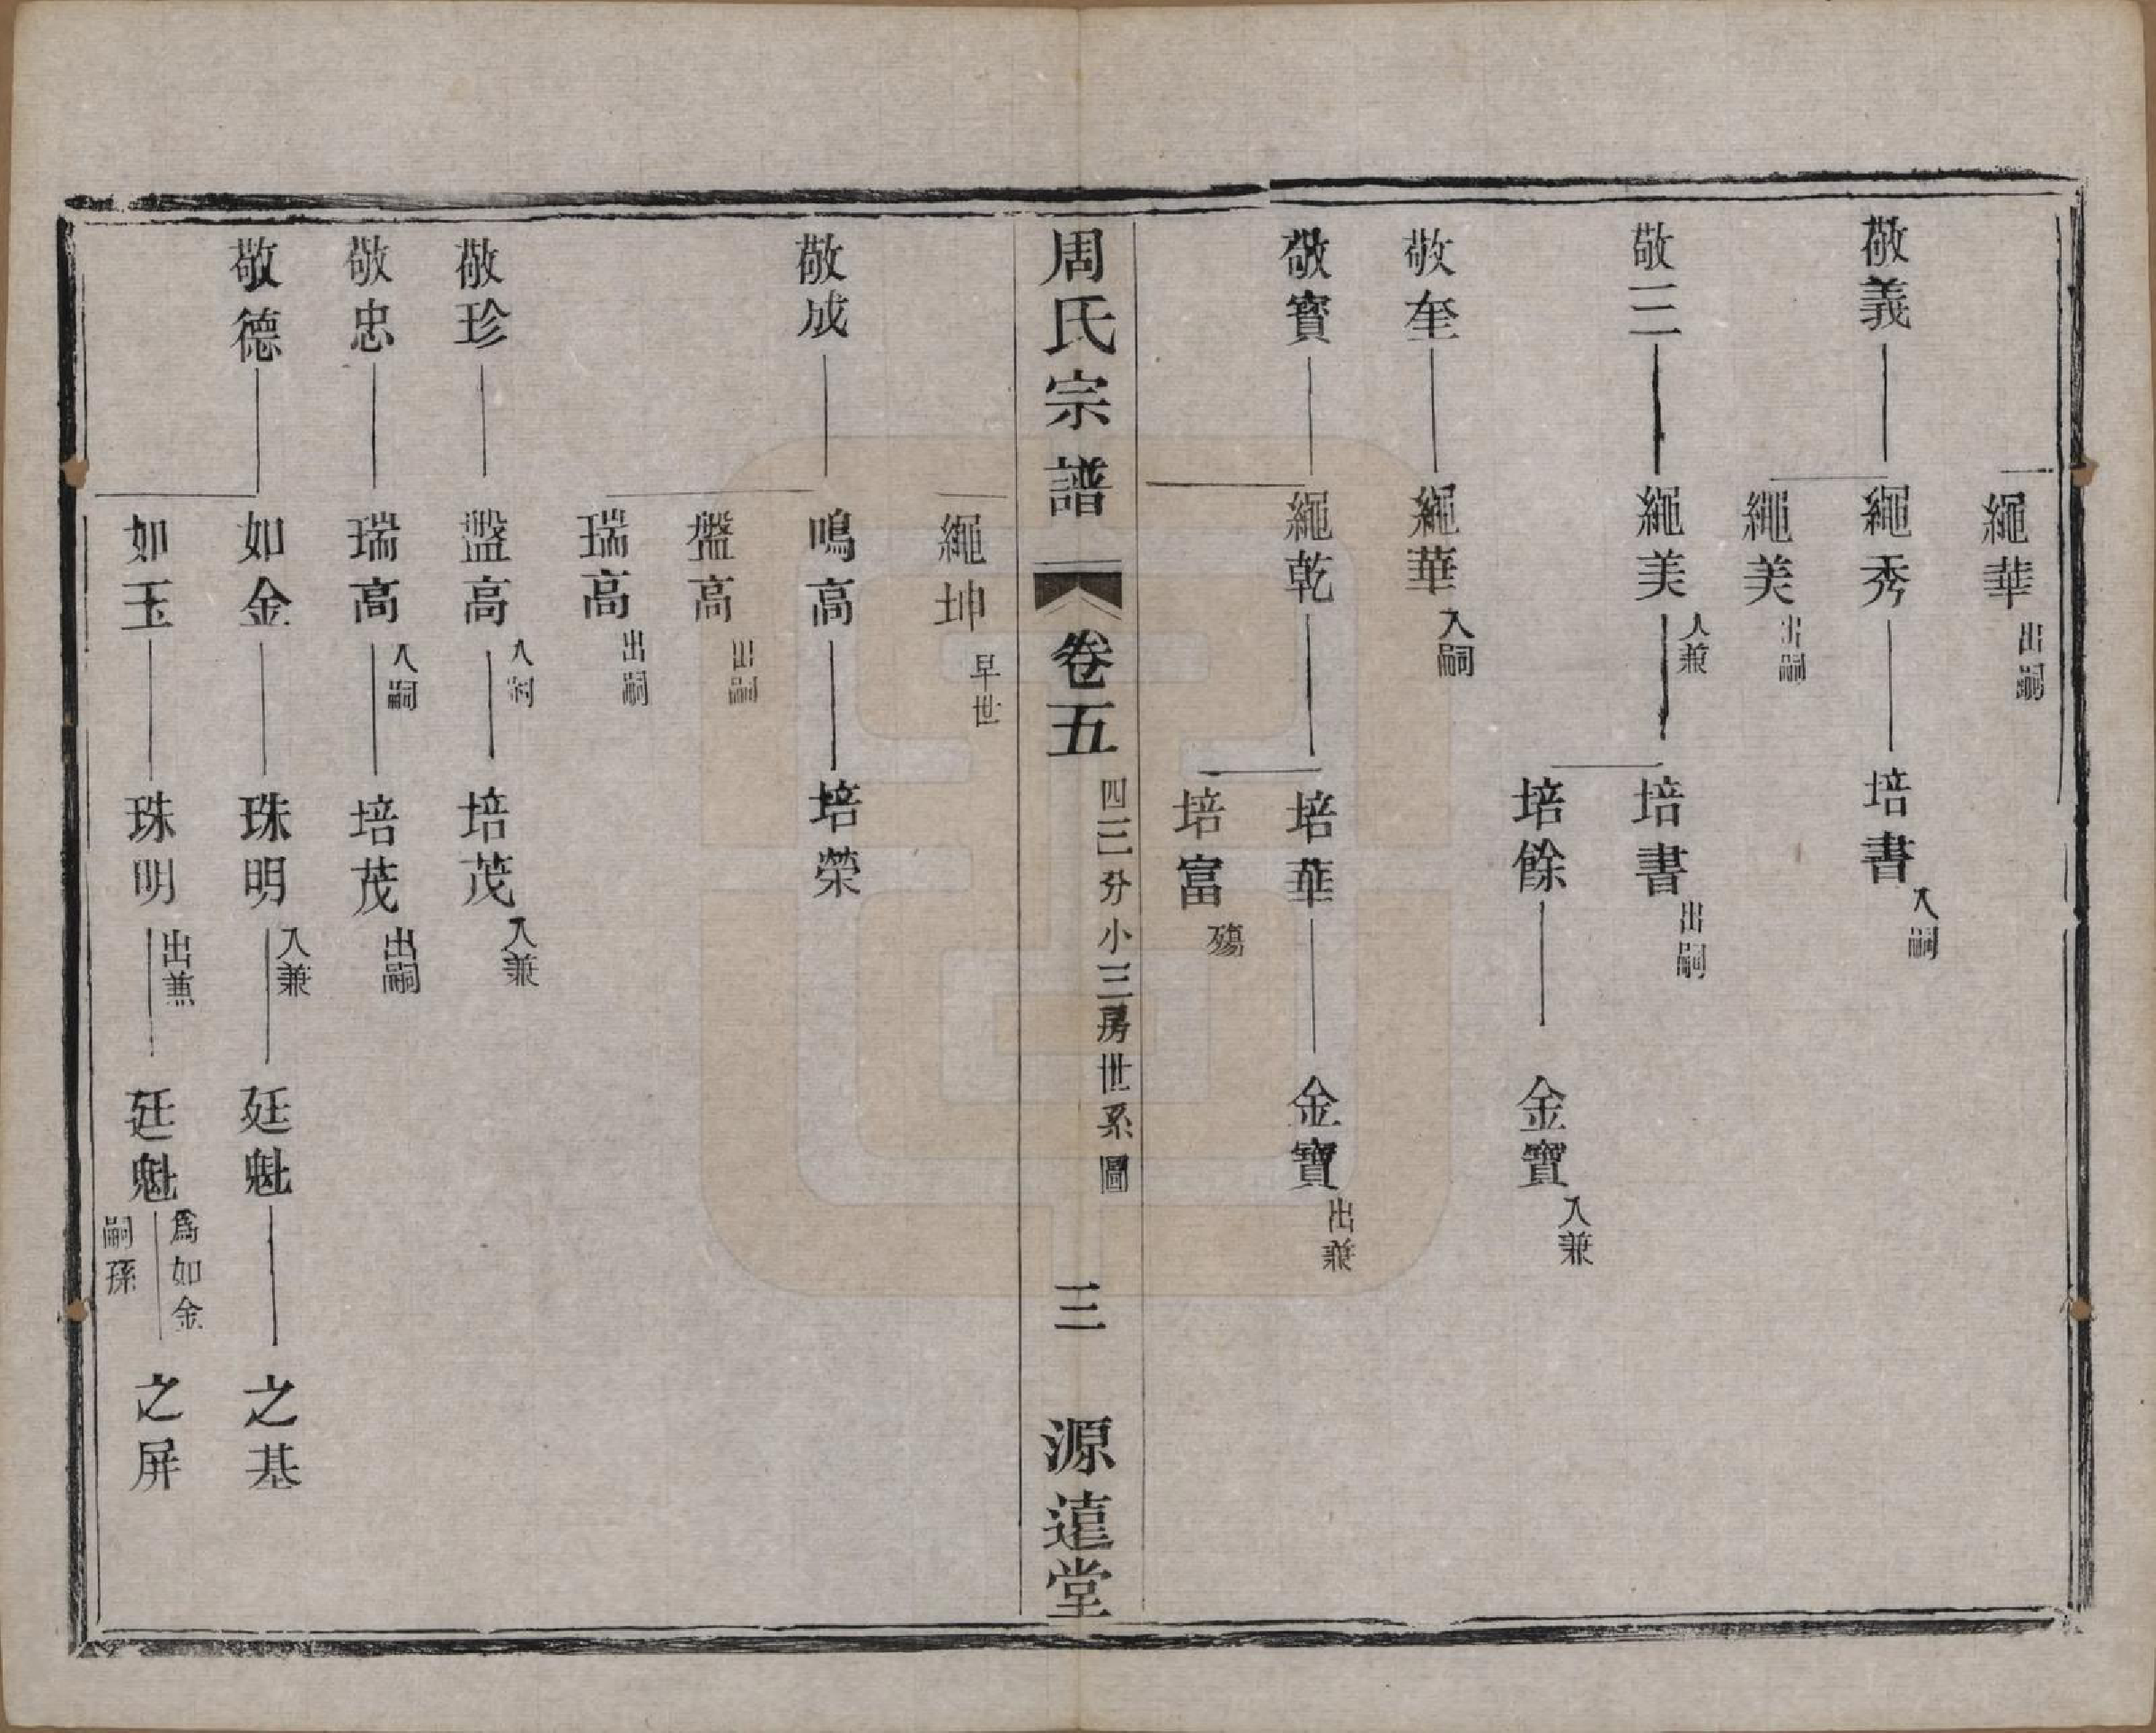 繩華 出嗣
敬義 繩秀 培書 入嗣
繩美 出嗣
敬三 繩美 入兼 培書 出嗣
培餘 金寶 入兼
敬奎 繩華 入嗣
敬寳 繩乾 培華 金寶 出兼
培富 殤
周氏宗譜 卷五 四三分小三房世系圖 三 源遠堂
繩坤 早世
敬成 鳴高 培榮
盤高 出嗣
瑞高 出嗣
敬珍 盤高 入嗣 培茂 入兼
敬忠 瑞高 入嗣 培茂 出嗣
敬德 如金 珠明 入兼 廷魁 之基
如玉 珠明 出兼 廷魁 為如金嗣孫 之屏